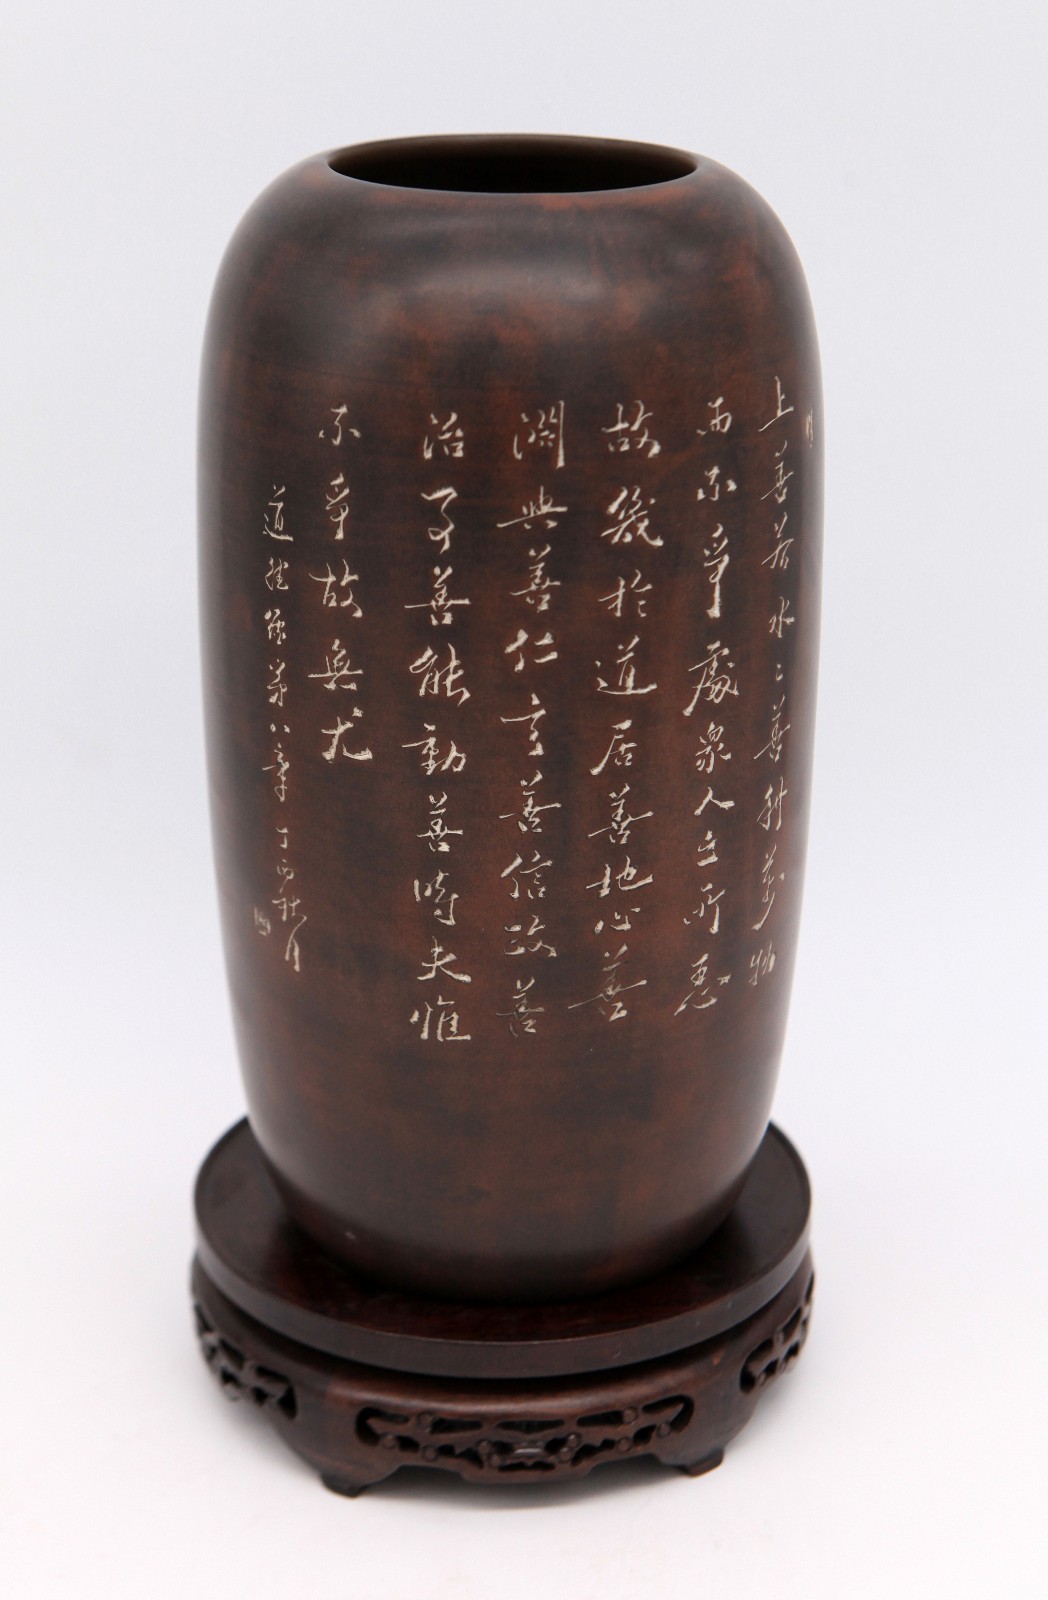 上善若水〻善利萬物
而不爭處衆人之所惡
故幾於道居善地心善
淵與善仁言善信政善
治事善能動善時夫惟
不爭故無尤
道德經第八章 丁酉秋月